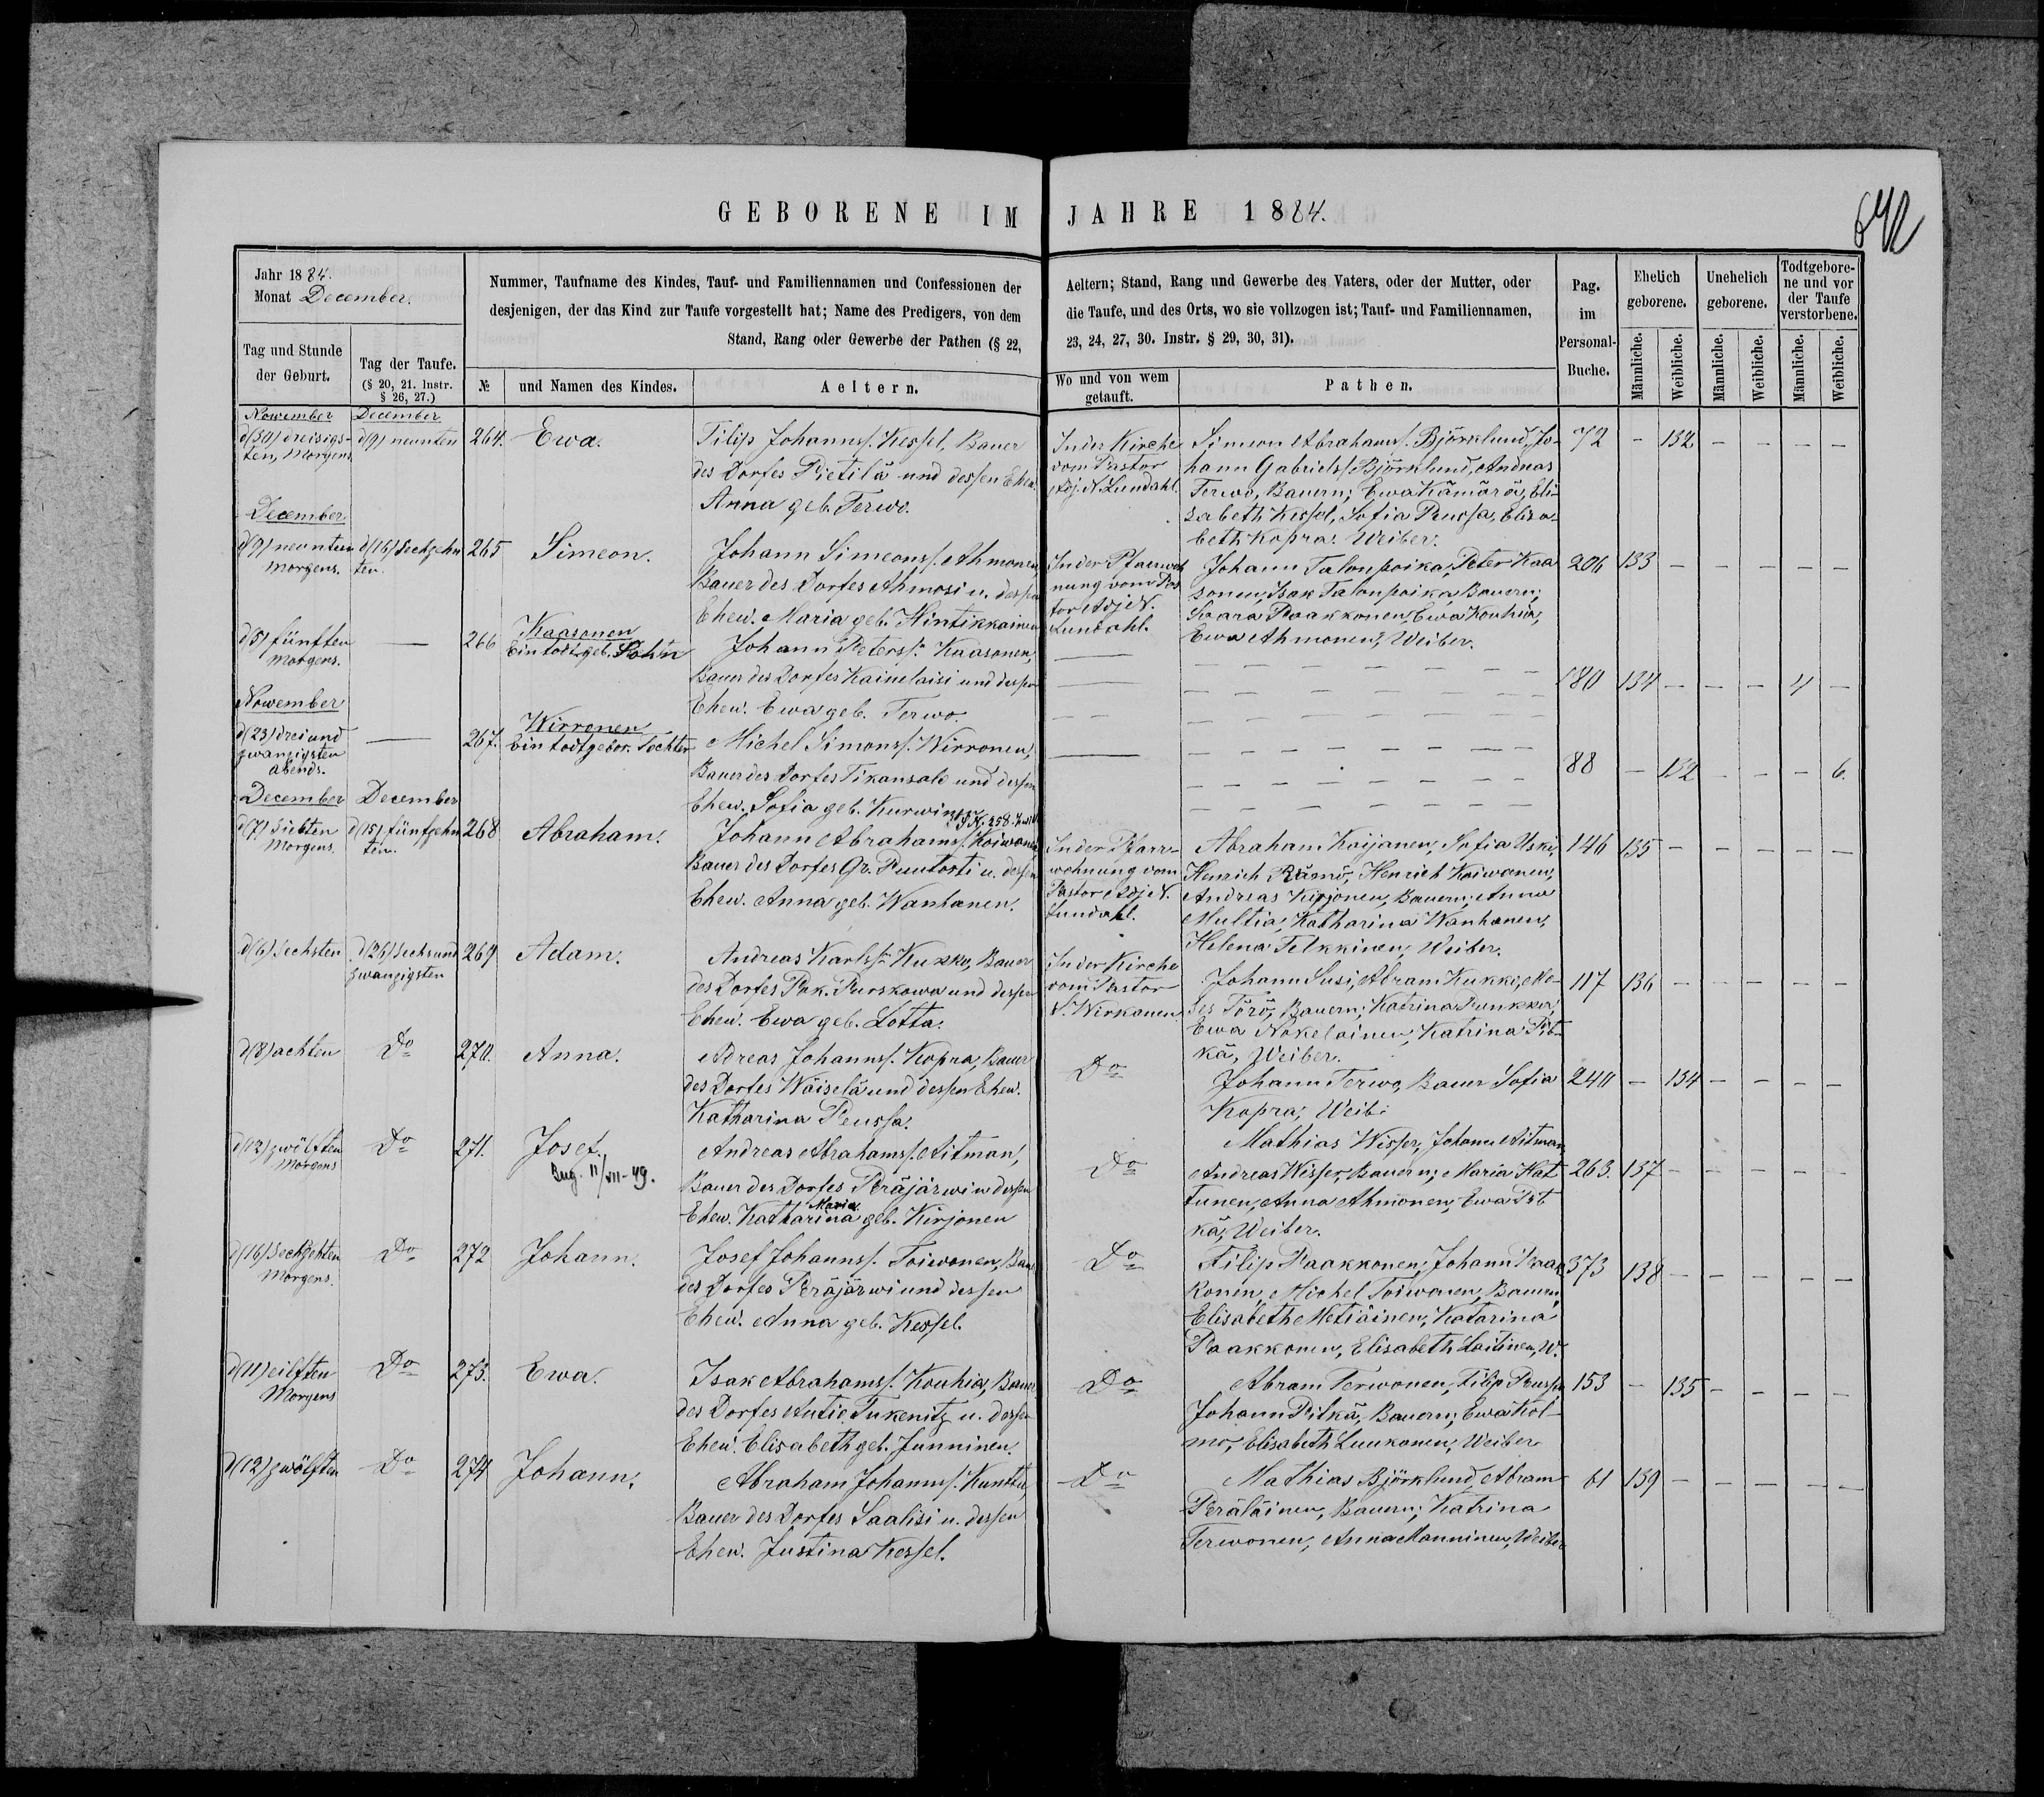 GEBORENE IM JAHRE 1884.
642
Jahr 1884.
Monat December.
Tag und Stunde
der Geburt.
Tag der Taufe.
(§ 20, 21. Instr.
§ 26, 27.)
Nummer, Taufname des Kindes, Tauf- und Familiennamen und Confessionen der
desjenigen, der das Kind zur Taufe vorgestellt hat; Name des Predigers, von dem
Stand, Rang oder Gewerbe der Pathen (§ 22,
№
und Namen des Kindes.
Aeltern.
Aeltern; Stand, Rang und Gewerbe des Vaters, oder der Mutter, oder
die Taufe, und des Orts, wo sie vollzogen ist; Tauf- und Familiennamen,
23, 24, 27, 30. Instr. § 29, 30, 31).
Wo und von wem
getauft.
Pathen.
Pag.
im
Personal-
Buche.
Ehelich
geborene.
Unehelich
geborene.
Todtgebore-
ne und vor
der Taufe
verstorbene.
Männliche.
Weibliche.
Männliche.
Weibliche.
Männliche.
Weibliche.
November
d(30) dreisigs-
ten, Morgens
December
d(9) neunten
264.
Ewa.
Filip Johanns/. Kessel, Bauer
des Dorfes Pietilä und dessen Ehew.
Anna geb. Terwo.
In der Kirche
vom Pastor
Adj. N. Lundahl.
Simeon Abrahams/. Björklund, Jo-
hann Gabriels/. Björklund, Andreas
Terwo, Bauern; Ewa Kämärä, Eli-
sabeth Kessel, Sofia Peussa, Elisa-
beth Kopra. Weiber.
72 - 132 - - - -
December
d(9) neunten
Morgens.
d(16) Sechzehn
ten.
265
Simeon.
Johann Simeons/. Ahmonen,
Bauer des Dorfes Ahmosi u. dessen
Ehew. Maria geb. Mintikkainen
In der Pfarrwoh
nung vom Pas
tor Adj N.
Lundahl.
Johann Talonpoika, Peter Kaa
sonen, Isak Talonpoika, Bauern;
Saara Paakkonen, Ewa Kouhia,
Ewa Ahmonen, Weiber.
206 133 - - - - -
d(5) fünften
Morgens.
266
Kaasonen
Ein todt geb. Sohn
Johann Peterss/. Kaasonen,
Bauer des Dorfes Kainelaisi und dessen
Ehew. Ewa geb. Terwo.
180 134 - - - 4 -
November
d(23) drei und
zwanzigsten
abends.
267.
Wirronen
Ein todtgebor. Tochter
Michel Simons/. Wirronen,
Bauer des Dorfes Tikansalo und dessen
Ehew. Sofia geb. Kurwinen
88 - 132 - - - 6.
December
d(7) siebten
Morgens.
December
d(15) fünfzehn
ten.
268
Abraham.
Johann Abrahams/. Koiwonen
Bauer des Dorfes Gr. Puutosti u. dessen
Ehew. Anna geb. Wanhanen.
In der Pfarr-
wohnung vom
Pastor Adj N.
Lundahl.
Abraham Kaijanen, Sofia Uski,
Henrich Rämö, Henrich Koiwonen,
Andreas Kirjonen, Bauern; Anna
Multia, Katharina Wanhanen,
Helena Telkkinen, Weiber.
146 135 - - - - -
d(6) Sechsten
d(26) Sechsund
zwanzigsten
269
Adam.
Andreas Karlss/. Kukko, Bauer
des Dorfes Pok. Purskowa und dessen
Ehew. Ewa geb. Lotta.
In der Kirche
vom Pastor
S. Wirkanen
Johann Susi, Abram Kukki, Mo-
ses Törö, Bauern; Katrina Punkka,
Ewa Nokelainen, Katrina Pit-
kä, Weiber.
117 136 - - - - -
d(8) achten
Do
270.
Anna.
Adreas Johanns/. Kopra, Bauer
des Dorfes Wäiselä und dessen Ehew.
Katharina Peussa.
Do
Johann Terwo, Bauer Sofia
Kopra, Weib.
240 - 134 - - - -
d(12) zwölften
Morgens
Do
271.
Josef.
Beg. 11/VII-49.
Andreas Abrahams/. Aitman,
Bauer des Dorfes Peräjärwi u dessen
Maria
Ehew. Katharina geb. Kirjonen
Do
Mathias Wisser, Johann Aitman
Andreas Wisser, Bauern; Maria Hat
tunen, Anna Ahmonen, Ewa Pit
kä, Weiber.
263. 137 - - - - -
d(16) Sechzehten
Morgens.
Do
272
Johann.
Josef Johanns/. Toiwonen, Bauer
des Dorfes Peräjärwi und dessen
Ehew. Anna geb. Kessel.
Do
Filip Paakkonen, Johann Paak
konen, Michel Toiwonen, Bauern
Elisabeth Metiäinen, Katarina
Paakkonen, Elisabeth Laitinen, W.
373 138 - - - - -
d(11) eilften
Morgens
Do
273.
Ewa.
Isak Abrahams/. Kouhia, Bauer
des Dorfes Autio Tukenitz u. dessen
Ehew. Elisabeth geb. Junninen.
Do
Abram Terwonen, Filip Peussa
Johann Pitkä, Bauern; Ewa Kol-
mo, Elisabeth Luukonen, Weiber
153 - 135 - - - -
d(12) zwölften
Do
274
Johann.
Abraham Johanns/. Kunttu,
Bauer des Dorfes Saalisi u. dessen
Ehew. Justina Kessel.
Do
Mathias Björklund, Abram
Peräläinen, Bauern; Katrina
Terwonen, Anna Manninen, Weiber
61 139 - - - - -